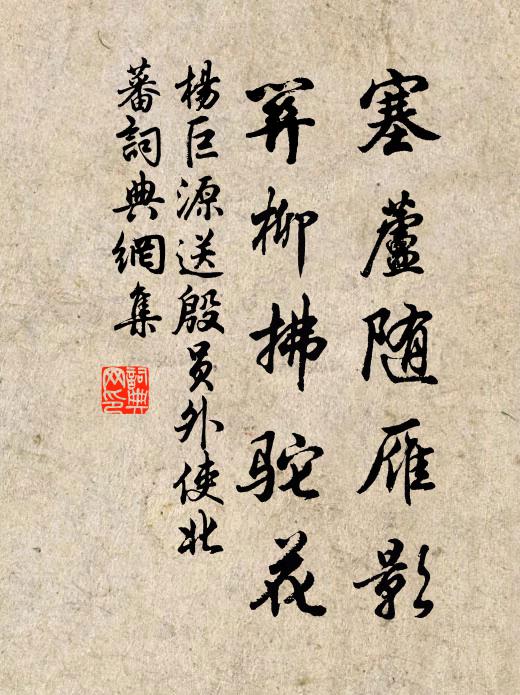 塞蘆随雁影
关柳拂駝花
楊巨源送殷员外使北
蕃詞典網集
詞典
网印